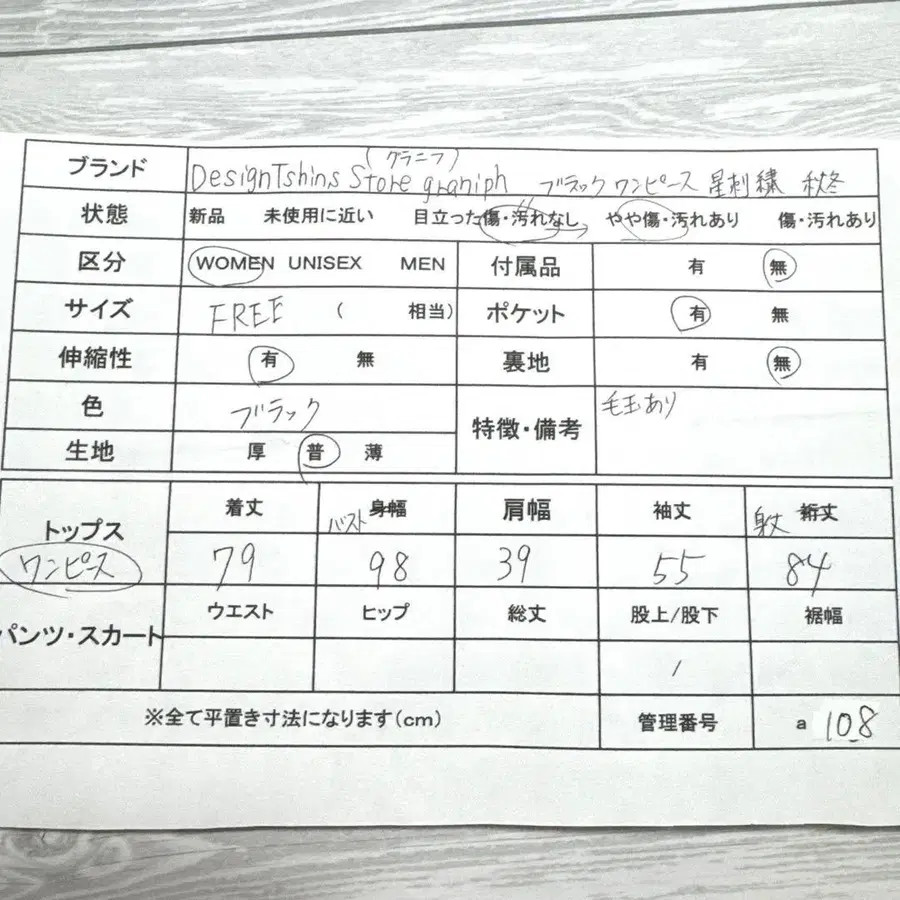 ブランド (グラニフ)
DesignTshins Store graniph ブラックワンピース 星刺繍 秋冬
状態 新品 未使用に近い 目立った傷・汚れなし やや傷・汚れあり 傷・汚れあり
区分 WOMEN UNISEX MEN 付属品 有 無
サイズ FREE ( 相当) ポケット 有 無
伸縮性 有 無 裏地 有 無
色 ブラック 特徴・備考 毛玉あり
生地 厚 普 薄
トップス 着丈 バスト 身幅 肩幅 袖丈 裄丈
ワンピース 79 98 39 55 84
パンツ・スカート ウエスト ヒップ 総丈 股上/股下 裾幅
/
※全て平置き寸法になります(cm) 管理番号 a 108